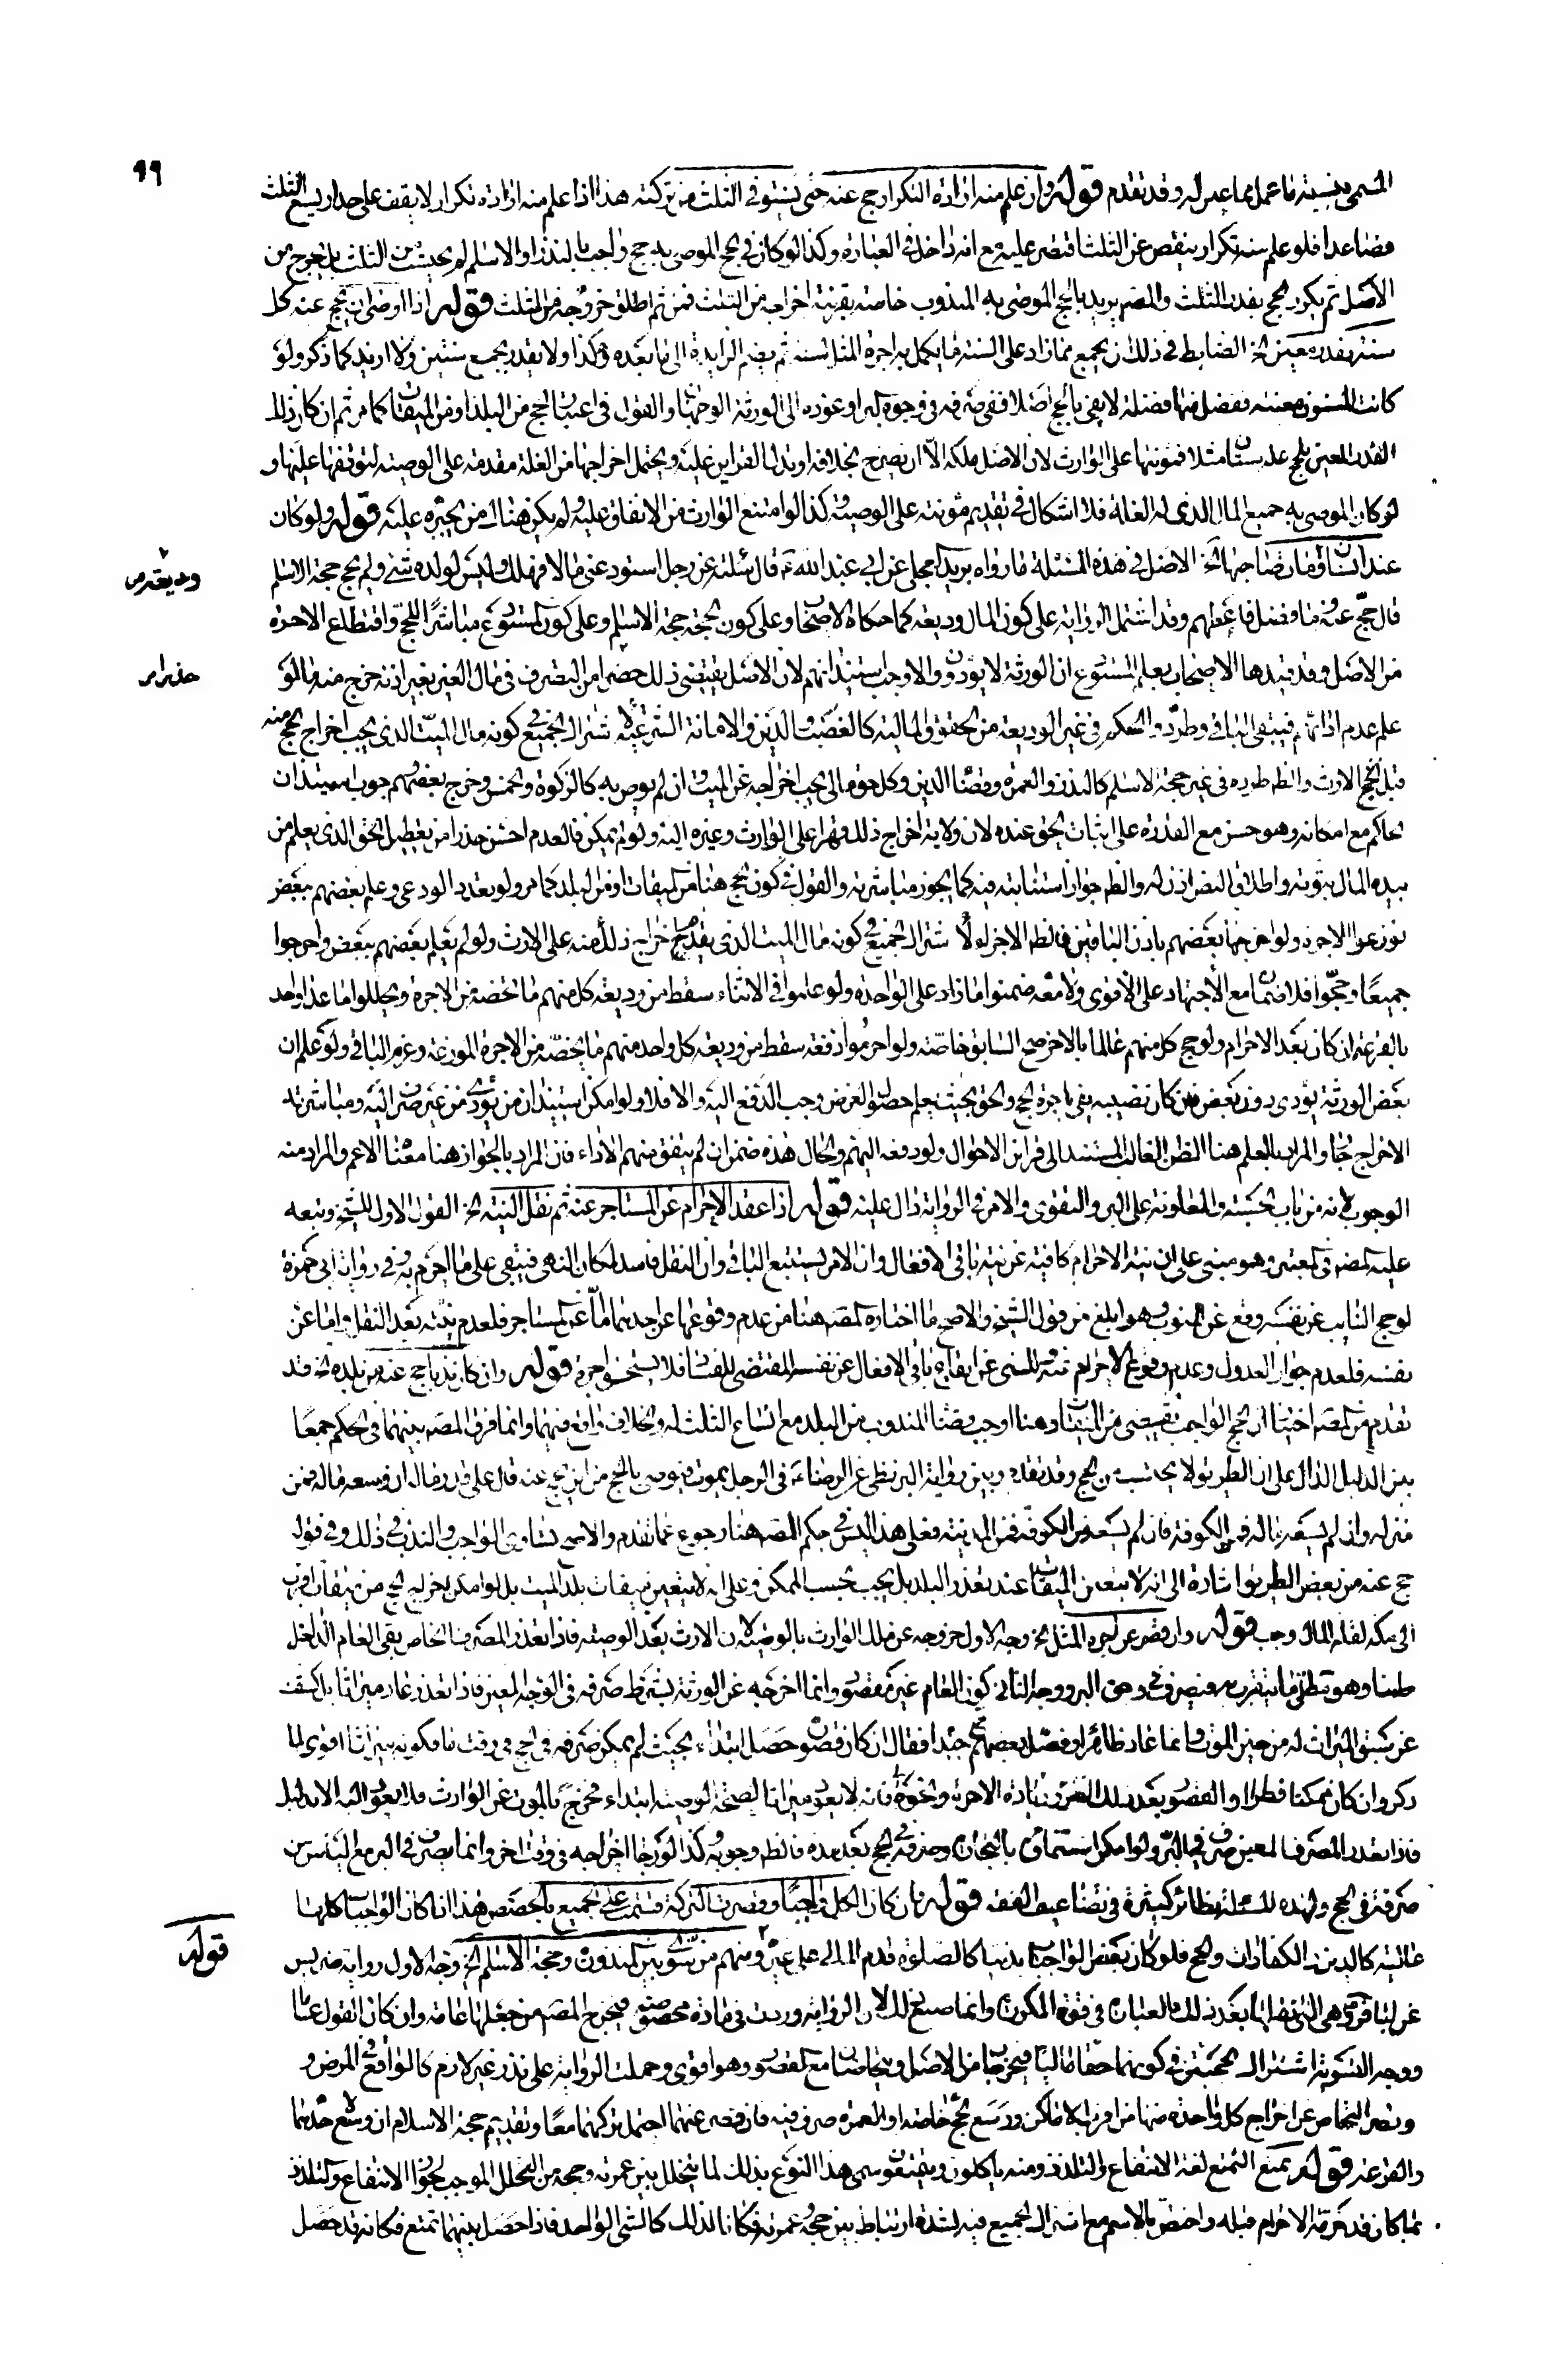 ٩٩
المسمى بنسبة ما عمل مما عين له وقد تقدم قوله وان علم منه ارادة التكرار حج عنه حتى يستوفى الثلث من تركته هذا اذا علم منه ارادة تكرار لا يقف على حد او يسع الثلث
فصاعدا فلو علم منه تكرار ينقص عن الثلث اقتصر عليه مع انه داخل فى العبارة وكذا لو كان فى الحج الموصى به حج واجب بالنذر او الاسلام لم يحتسب من الثلث بل يخرج من
الاصل ثم يكرر الحج بقدر الثلث والمصر يريد بالحج الموصى به المندوب خاصة بقرينة اخراجه من الثلث فمن ثم اطلق خروجه من الثلث قوله اذا اوصى ان يحج عنه كل
سنة بقدر معين الخ الضابط فى ذلك ان يجمع مما زاد على السنة ما يكمل به اجرة المثل لسنة ثم يضم الزايد الى ما بعده وهكذا ولا يقدر بجمع سنتين ولا ازيد كما ذكر ولو
كانت السنون معينة ففضل منها فضلة لا يفى بالحج اصلا ففى صرفه فى وجوه البر او عوده الى الورثة الوجهان والقول فى اعتبار الحج من البلد او من الميقات كما مر ثم ان كان ذلك
القدر المعين للحج غلة بستان مثلا فمؤنتها على الوارث لان الاصل ملكه الا ان يصرح بخلافه او يدل القراين عليه ويحتمل اخراجها من الغلة مقدمة على الوصية لتوقفها عليها و
لو كان الموصى به جميع المال الذى له الغلة فلا اشكال فى تقديم مؤنته على الوصية وكذا لو امتنع الوارث من الانفاق عليه ولم يكن هناك من يجبره عليه قوله ولو كان
عند انسان وديعة ومات صاحبها الخ الاصل فى هذه المسئلة ما رواه بريد العجلى عن ابى عبد الله ع قال سئلته عن رجل استودعنى مالا فهلك وليس لولده شئ ولم يحج حجة الاسلم
قال حج عنه وما فضل فاعطهم وقد اشتمل الرواية على كون المال وديعة كما حكاه الاصحاب وعلى كون الحجة حجة الاسلم وعلى كون المستودع مباشرا للحج واقتطاع الاجرة
من الاصل وقد قيدها الاصحاب بعلم المستودع ان الورثة لا يؤدون والا وجب استيذانهم لان الاصل يقتضى ذلك حذرا من التصرف فى مال الغير بغير اذنه خرج منه ما لو
علم عدم ادائهم فيبقى الباقى وطرد والحكم فى غير الوديعة من الحقوق المالية كالغصب والدين والامانة الشرعية لاشتراك الجميع فى كونه مال الميت الذى يجب اخراج الحج منه
قبل الارث والظ طرده فى غير حجة الاسلم كالنذر والعمرة وقضاء الدين وكل حق مالى يجب اخراجه عن الميت وان لم يوص به كالزكوة والخمس وخرج بعضهم وجوب استيذان
الحاكم مع امكانه وهو حسن مع القدرة على اثبات الحق عنده لان ولاية اخراج ذلك قهرا على الوارث وغيره اليه ولو لم يمكن فالعدم احسن حذرا من تعطيل الحق الذى يعلم من
بيده المال ثبوته واطلاق النص اذن له والظ جواز استنابته فيه كما يجوز مباشرته والقول فى كون الحج هنا من الميقات او من البلد كما مر ولو تعدد الودعى وعلم بعضهم ببعض
توزعوا الاجرة ولو اخرجها بعضهم باذن الباقين فالظ الاجزاء لاشتراك الجميع فى كونه مال الميت الذى يقدم اخراج ذلك منه على الارث ولو لم يعلم بعضهم ببعض واخرجوا
جميعا وحجوا فلا ضمان مع الاجتهاد على الاقوى ولا معه ضمنوا ما زاد على الواحدة ولو علموا فى الاثناء سقط من وديعة كل منهم ما تخصه من الاجرة وتحللوا ما عدا واحد
بالقرعة ان كان بعد الاحرام ولو حج كل منهم عالما بالاخر صح السابق خاصة ولو احرموا دفعة سقط من وديعة كل واحد منهم ما يخصه من الاجرة الموزعة وغرم الباقى ولو علم ان
بعض الورثة يؤدى دون بعض فمن كان نصيبه يفى باجرة الحج والحق بحيث يعلم حصول الغرض وجب الدفع اليه والا فلا ولو امكن استيذان من يؤدى من غير ضرر اليه ومباشرته
الاخراج جاز والمراد بالعلم هنا الظن الغالب المستند الى قراين الاحوال ولو دفعه اليهم والحال هذه ضمن ان لم يتفق منهم الاداء فان المراد بالجواز هنا معناه الاعم والمراد منه
الوجوب لانه من باب الحسبة والمعاونة على البر والتقوى والامر فى الرواية دال عليه قوله اذا عقد الاحرام عن المستاجر عنه ثم نقل النية الخ القول الاول للشيخ وتبعه
عليه المصر فى المعتبر وهو مبنى على ان نية الاحرام كافية عن نية باقى الافعال وان الامر يستتبع الباقى وان النقل فاسد لمكان النهى فيبقى على ما احرم به وفى رواية ابى حمزة
لو حج النايب عن نفسه وقع عن المنوب وهو ابلغ من قول الشيخ والاصح ما اختاره المصر هنا من عدم وقوعها عن احدهما اما عن المستاجر فلعدم نيته بعد النقل واما عن
نفسه فلعدم جواز العدول وعدم وقوع الاحرام عنه وللنهى عن ايقاع باقى الافعال عن نفسه المقتضى للفساد فلا يستحق اجرة قوله وان كان نذر يا حج عنه من بلده الخ قد
تقدم من المصر اختيار ان الحج الواجب يقضى من الميقات وهنا اوجب قضاء المندوب من البلد مع اتساع الثلث له والخلاف واقع فيهما وانما فرق المصر بينهما فى الحكم جمعا
بين الدليل الدال على ان الطريق لا يحتسب من الحج وقد تقدم وبين رواية البزنطى عن الرضا ع فى الرجل يموت فيوصى بالحج من اين يحج عنه قال على قدر ماله ان وسعه ماله فمن
منزله وان لم يسعه ماله فمن الكوفة فان لم يسعه من الكوفة فمن المدينة فعلى هذا ليس فى حكم المصر هنا رجوع عما تقدم والاصح تساوى الواجب والندب فى ذلك وفى قوله
حج عنه من بعض الطريق اشارة الى انه لا يتعين الميقات عند تعذر البلد بل يجب بحسب الممكن وعلى انه لا يتعين ميقات بلد الميت بل لو امكن اخراجه الحج من ميقات اقرب
الى مكة لقلة المال وجب قوله وان قصر عن اجرة المثل الخ وجه الاول خروجه عن ملك الوارث بالوصية لان الارث بعد الوصية فاذا تعذر المصرف الخاص بقى العام الداخل
ضمنا وهو مطلق ما يتقرب به فيصرف فى وجوه البر ووجه الثانى كون العام غير مقصود وانما اخرجه عن الورثة بشرط صرفه فى الوجه المعين فاذا تعذر عاد ميراثا بل كشف
عن سبق الميراث له من حين الموت وانما عاد ظاهرا وفصل بعضهم جيدا فقال ان كان قصوره حصل ابتداء بحيث لم يمكن صرفه فى الحج فى وقت ما فكونه ميراثا اقوى لما
ذكر وان كان ممكنا فطرا والقصور بعد ذلك لعروض زيادة الاجرة ونحوه فانه لا يعود ميراثا لصحة الوصية ابتداء فخرج بالموت عن الوارث فلا يعود اليه الا بدليل
فاذا تعذر المصرف المعين صرف فى البر ولو امكن استنماؤه بالتجارة وصرفه فى الحج بعد مدة فالظ وجوبه وكذا لو رجا اخراجه فى وقت اخر وانما يصرف فى البر مع الياس من
صرفه فى الحج ولهذه المسئلة نظائر كثيرة فى تضاعيف الفقه قوله فان كان الكل واجبا وقصرت التركة قسمت على الجميع بالحصص هذا اذا كان الواجبات كلها
مالية كالدين والكفارات والحج فلو كان بعض الواجبات بدنيا كالصلوة قدم المالى على غيره ومنهم من سوى بين المنذورة وحجة الاسلام الخ وجه الاول رواية ضريس
عن الباقر ع وهى التى نقلها بعد ذلك العبارة فى قوة المكررة وانما صنع ذلك لان الرواية وردت فى مادة مخصوصة فخرج المصر من جعلها عامة وان كان القول عاما
ووجه التسوية اشتراك الحجتين فى كونهما حقا ماليا فيخرجان من الاصل ويتحاصان مع القصور وهو اقوى وحملت الرواية على نذر غير لازم كالواقع فى المرض و
ولو قصر التحاص عن اخراج كل واحدة منهما من اقرب الاماكن ووسع الحج خاصة او العمرة صرف فيه فان قصر عنهما احتمل تركهما معا وتقديم حجة الاسلام ان وسع احدهما
والقرعة قوله تمتع التمتع لغة الانتفاع والتلذذ ومنه ياكلون ويتمتعون سمى هذا النوع بذلك لما يتخلل بين عمرته وحجه من التحلل الموجب لجواز الانتفاع والتلذذ
بما كان قد حرمه الاحرام قبله واختص بالاسم مع اشتراك الجميع فيه لشدة ارتباط بين حجه وعمرته فكانا لذلك كالشئ الواحد فاذا حصل بينهما تمتع فكانه قد حصل
وديعة ص
حذرا ص
قوله